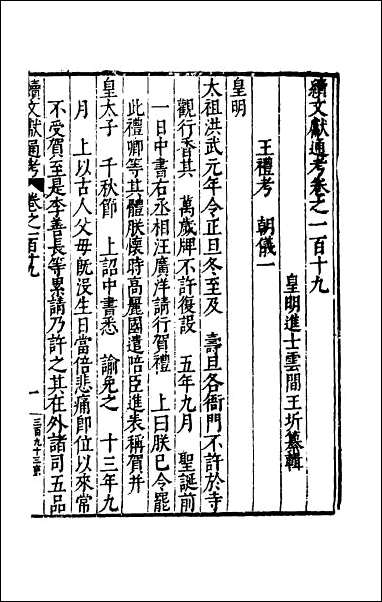 續文獻通考卷之一百十九
皇明進士雲間王圻纂輯
王禮考　朝儀一
皇明
太祖洪武元年令正旦冬至及　壽旦各衙門不許於寺
觀行香其　萬歲牌不許復設　五年九月　聖誕前
一日中書右丞相汪廣洋請行賀禮　上曰朕巳令罷
此禮卿等其體朕懷時高麗國遣陪臣進表稱賀并
皇太子　千秋節　上詔中書悉　諭免之　十三年九
月　上以古人父母既沒生日當倍悲痛卽位以來常
不受賀至是李善長等累請乃許之其在外諸司五品
續文獻通考　卷之百十九　一　三百九十三